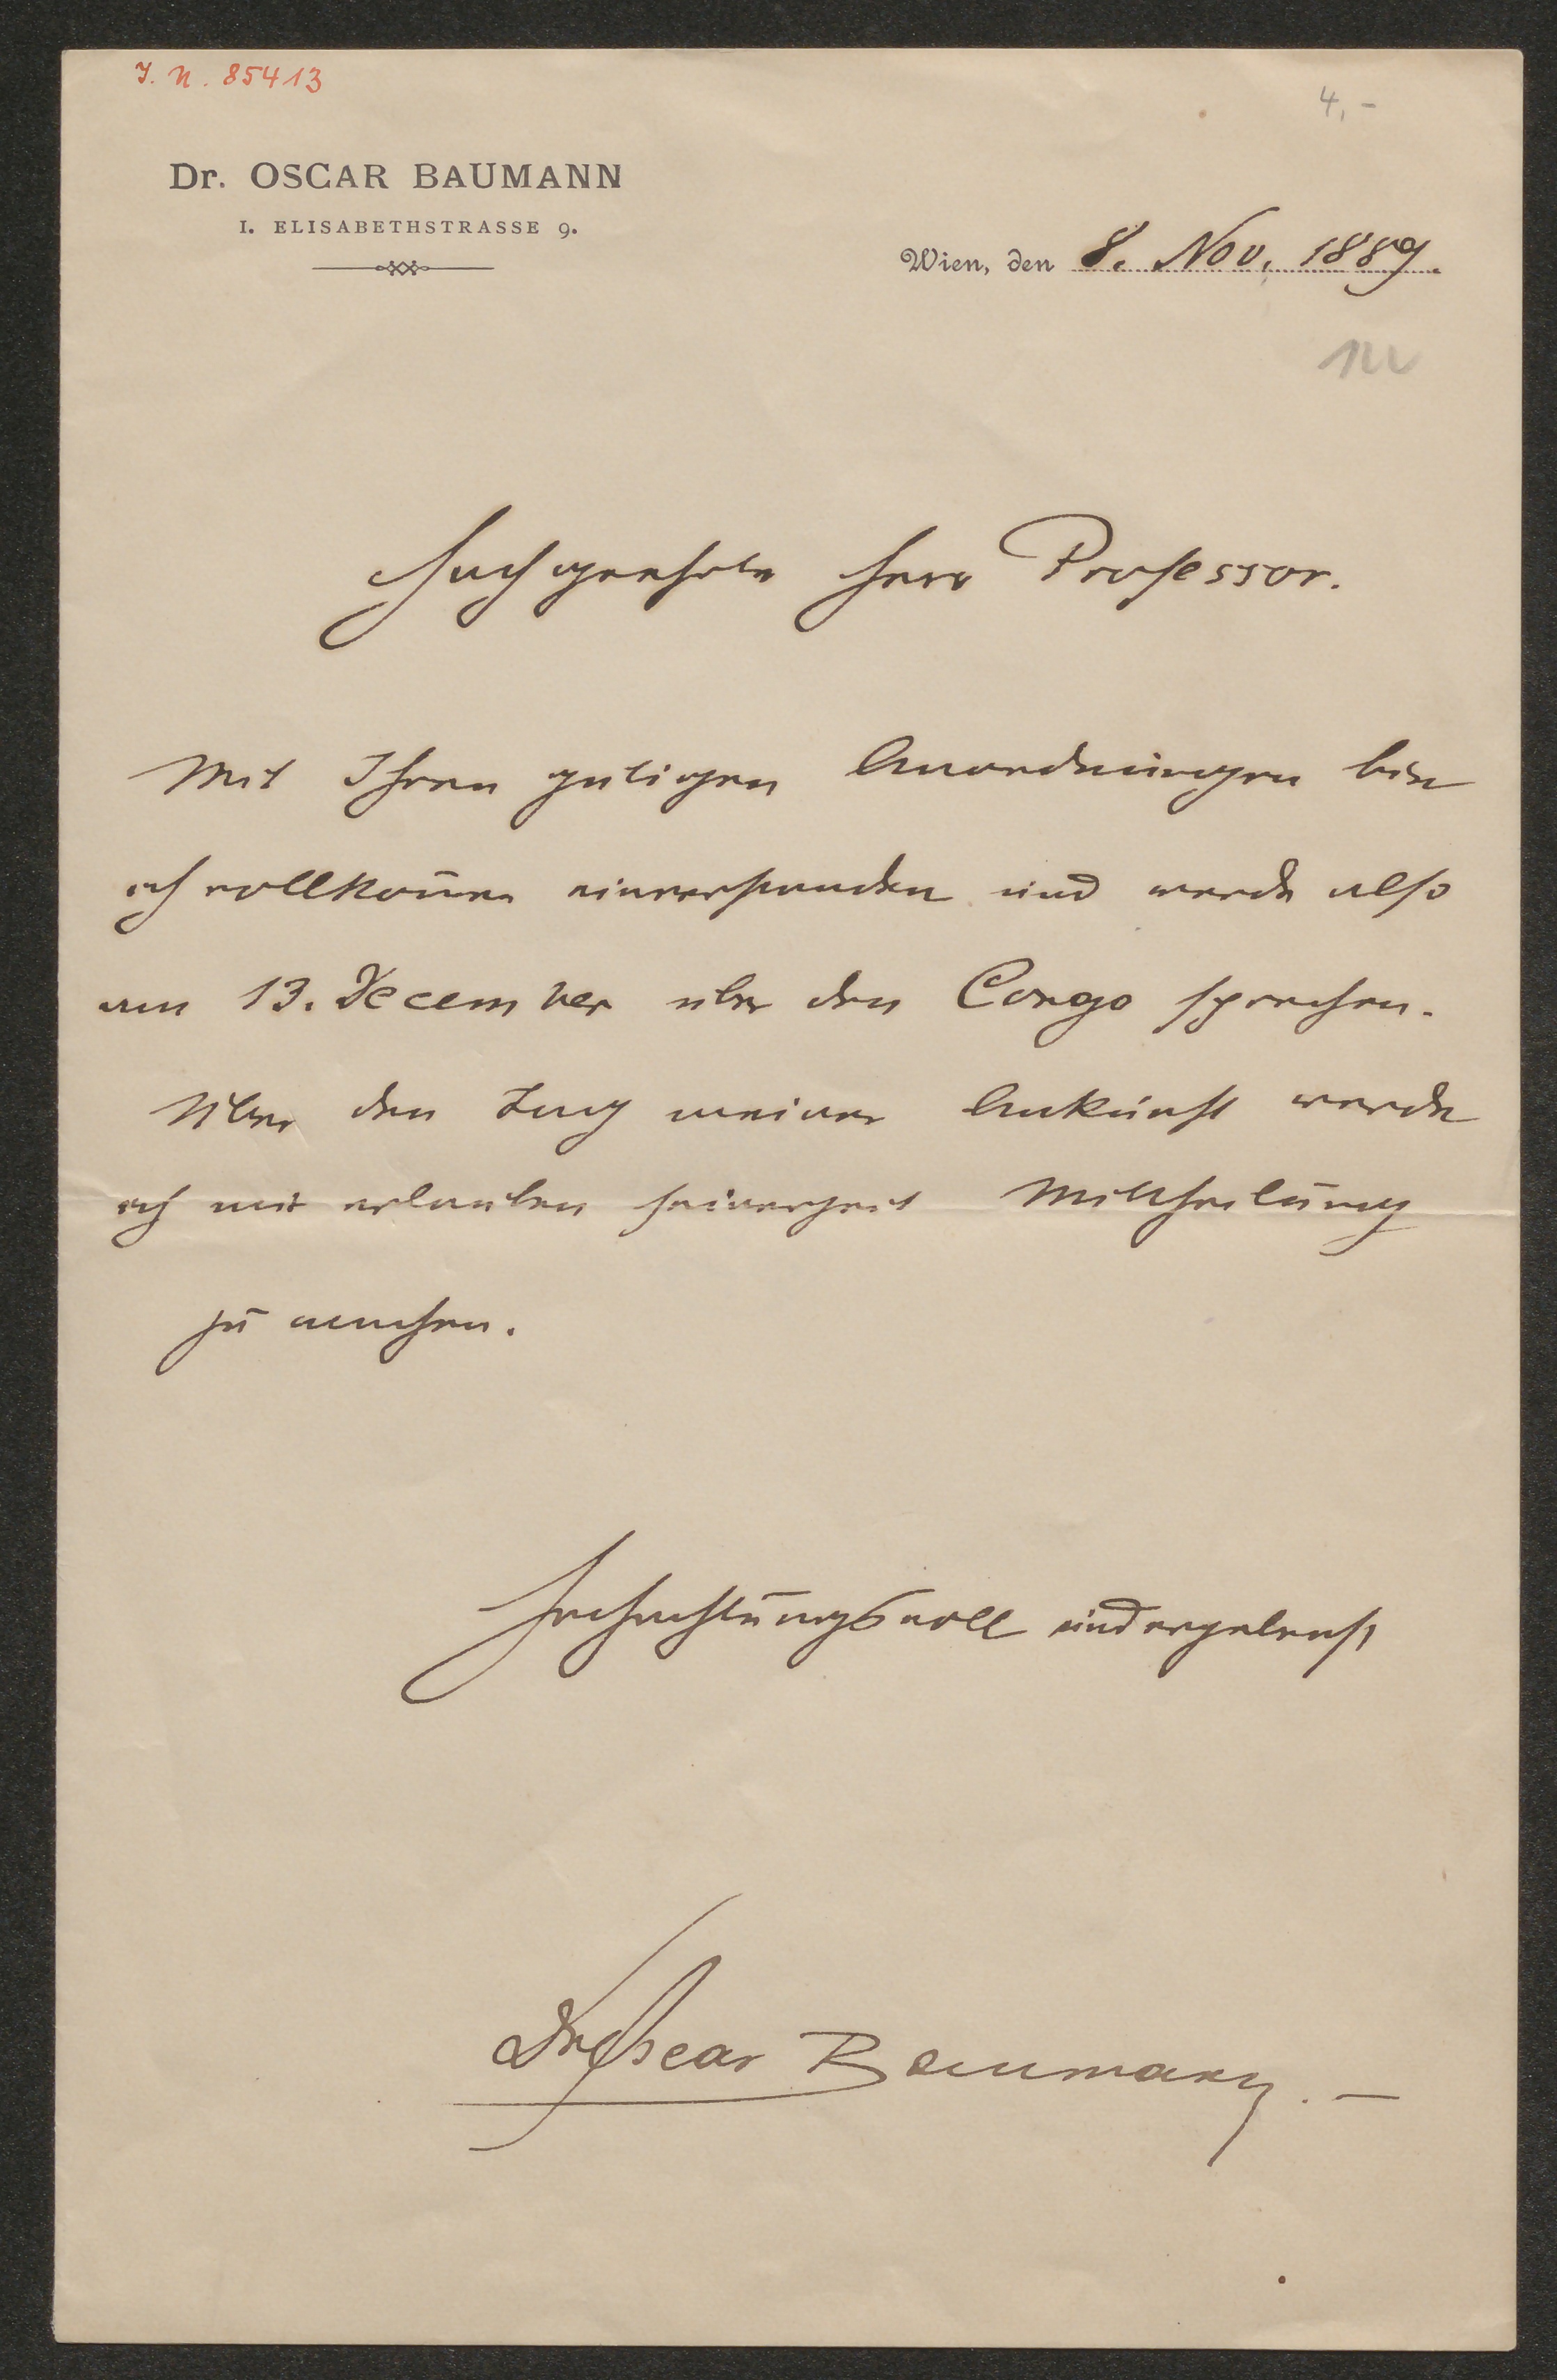 J. N. 85413
4,-
Dr. OSCAR BAUMANN
I. ELISABETHSTRASSE 9.
Wien, den 8. Nov. 1889.
Hochgeehrter Herr Professor.
Mit Ihren gütigen Anordnungen bin
ich vollkom̅en einverstanden und werde also
am 13. December über den Congo sprechen.
Über den Tag meiner Ankunft werde
ich mir erlauben seinerzeit Mittheilung
zu machen.
Hochachtungsvoll und ergebenst
Dr Oscar Baumann.—